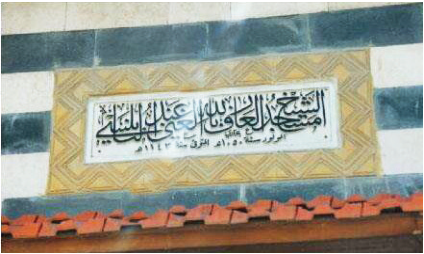 مسجد الشيخ العارف بالله عبد الغني النابلسي
المولود سنة ١٠٥٠هـ المتوفى سنة ١١٤٣هـ